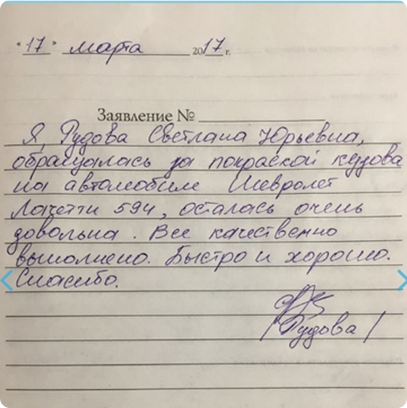 "17" марта 2017 г.
Заявление №
Я, Рудова Светлана Юрьевна,
обращалась за покраской кузова
на автомобиле Шевролет
Лачетти 594, осталась очень
довольна. Все качественно
выполнено. Быстро и хорошо.
Спасибо.
/Рудова/